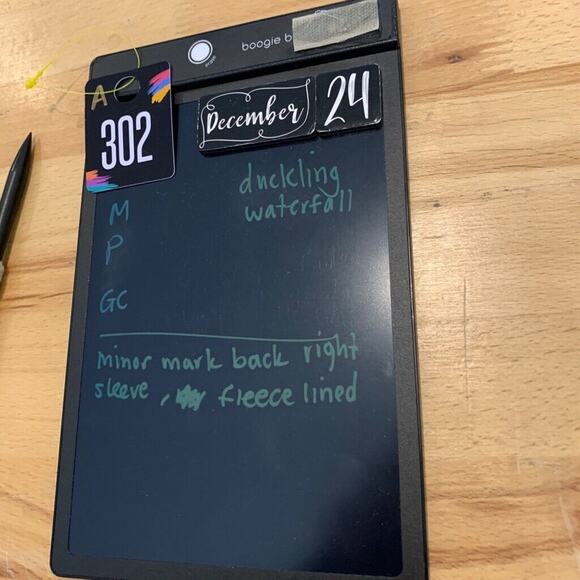 boogie b
erase
A
302
December
24
duckling
waterfall
M
P
GC
minor mark back right
sleeve, fleece lined